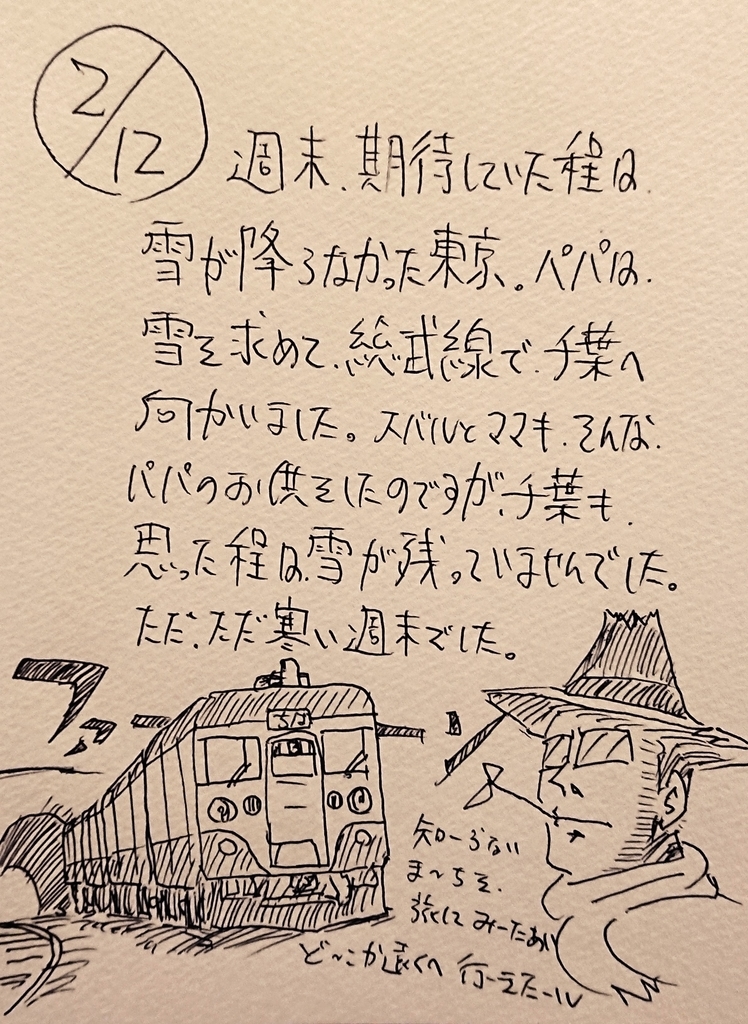 2/12
週末、期待していた程は、
雪が降らなかった東京。パパは、
雪を求めて、総武線で、千葉へ
向かいました。スバルとママも、そんな、
パパのお供をしたのですが、千葉も、
思った程は、雪が残っていませんでした。
ただ、ただ寒い週末でした。
ファーン
知ーらない
ま〜ちを、
旅してみーたあい
ど〜こか遠くへ行ーきたーい